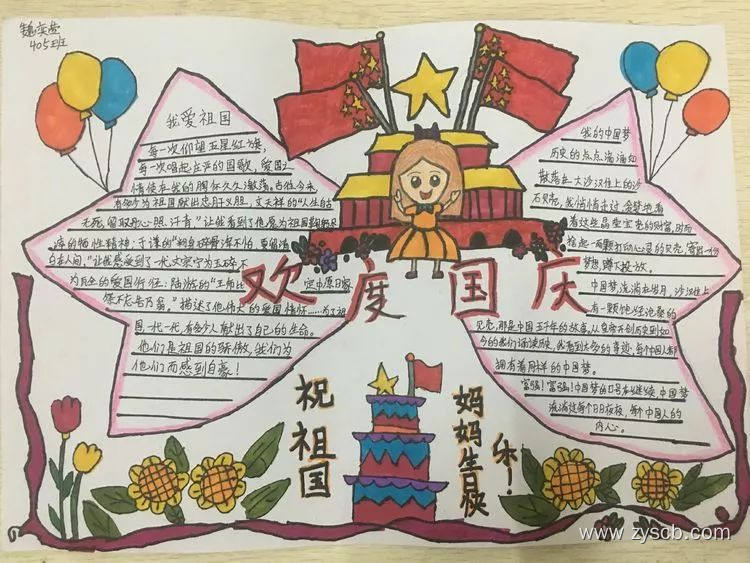 405班
我爱祖国
每一次仰望五星红旗,
每一次唱起庄严的国歌,爱国之
情便在我的胸怀久久激荡。古往今来,
有多少为祖国献出忠肝义胆。文天祥的“人生自古
无死,留取丹心照汗青。”让我看到了他愿为祖国
的牺牲精神;于谦的“粉身碎骨浑不怕,要留清
白在人间。”让我感受到了一代文宗宁为玉碎不
为瓦全的爱国何往;陆游的“王师北
定中原日家
祭不忘告乃翁。”描述了他伟大的爱国情怀……为了祖
国一代一代有多少人献出了自己的生命。
他们是祖国的骄傲,我们为
他们而感到自豪!
欢度国庆
我的中国梦
历史的点点滴滴如
散落在大沙汉住上的沙
石贝壳,我悄悄走过
看着这些晶莹宝亮的财富,因而
拾起一两颗打动心灵的贝壳,寄出一份
梦想,蹲下投放。
中国梦流淌在岁月,沙汉住上
有一颗饱经沧桑的
贝壳,那是中国五千年的故事,从皇帝开创历史到如
今的我们诵读历史,我看到太多的事迹,每个中国人都
拥有着同样的中国梦。
富强!富强!中国梦的口号在继续,中国梦
流淌这每个日日夜夜,每个中国人的
内心。
祝祖国
妈妈生日快
乐!
www.zyscb.com